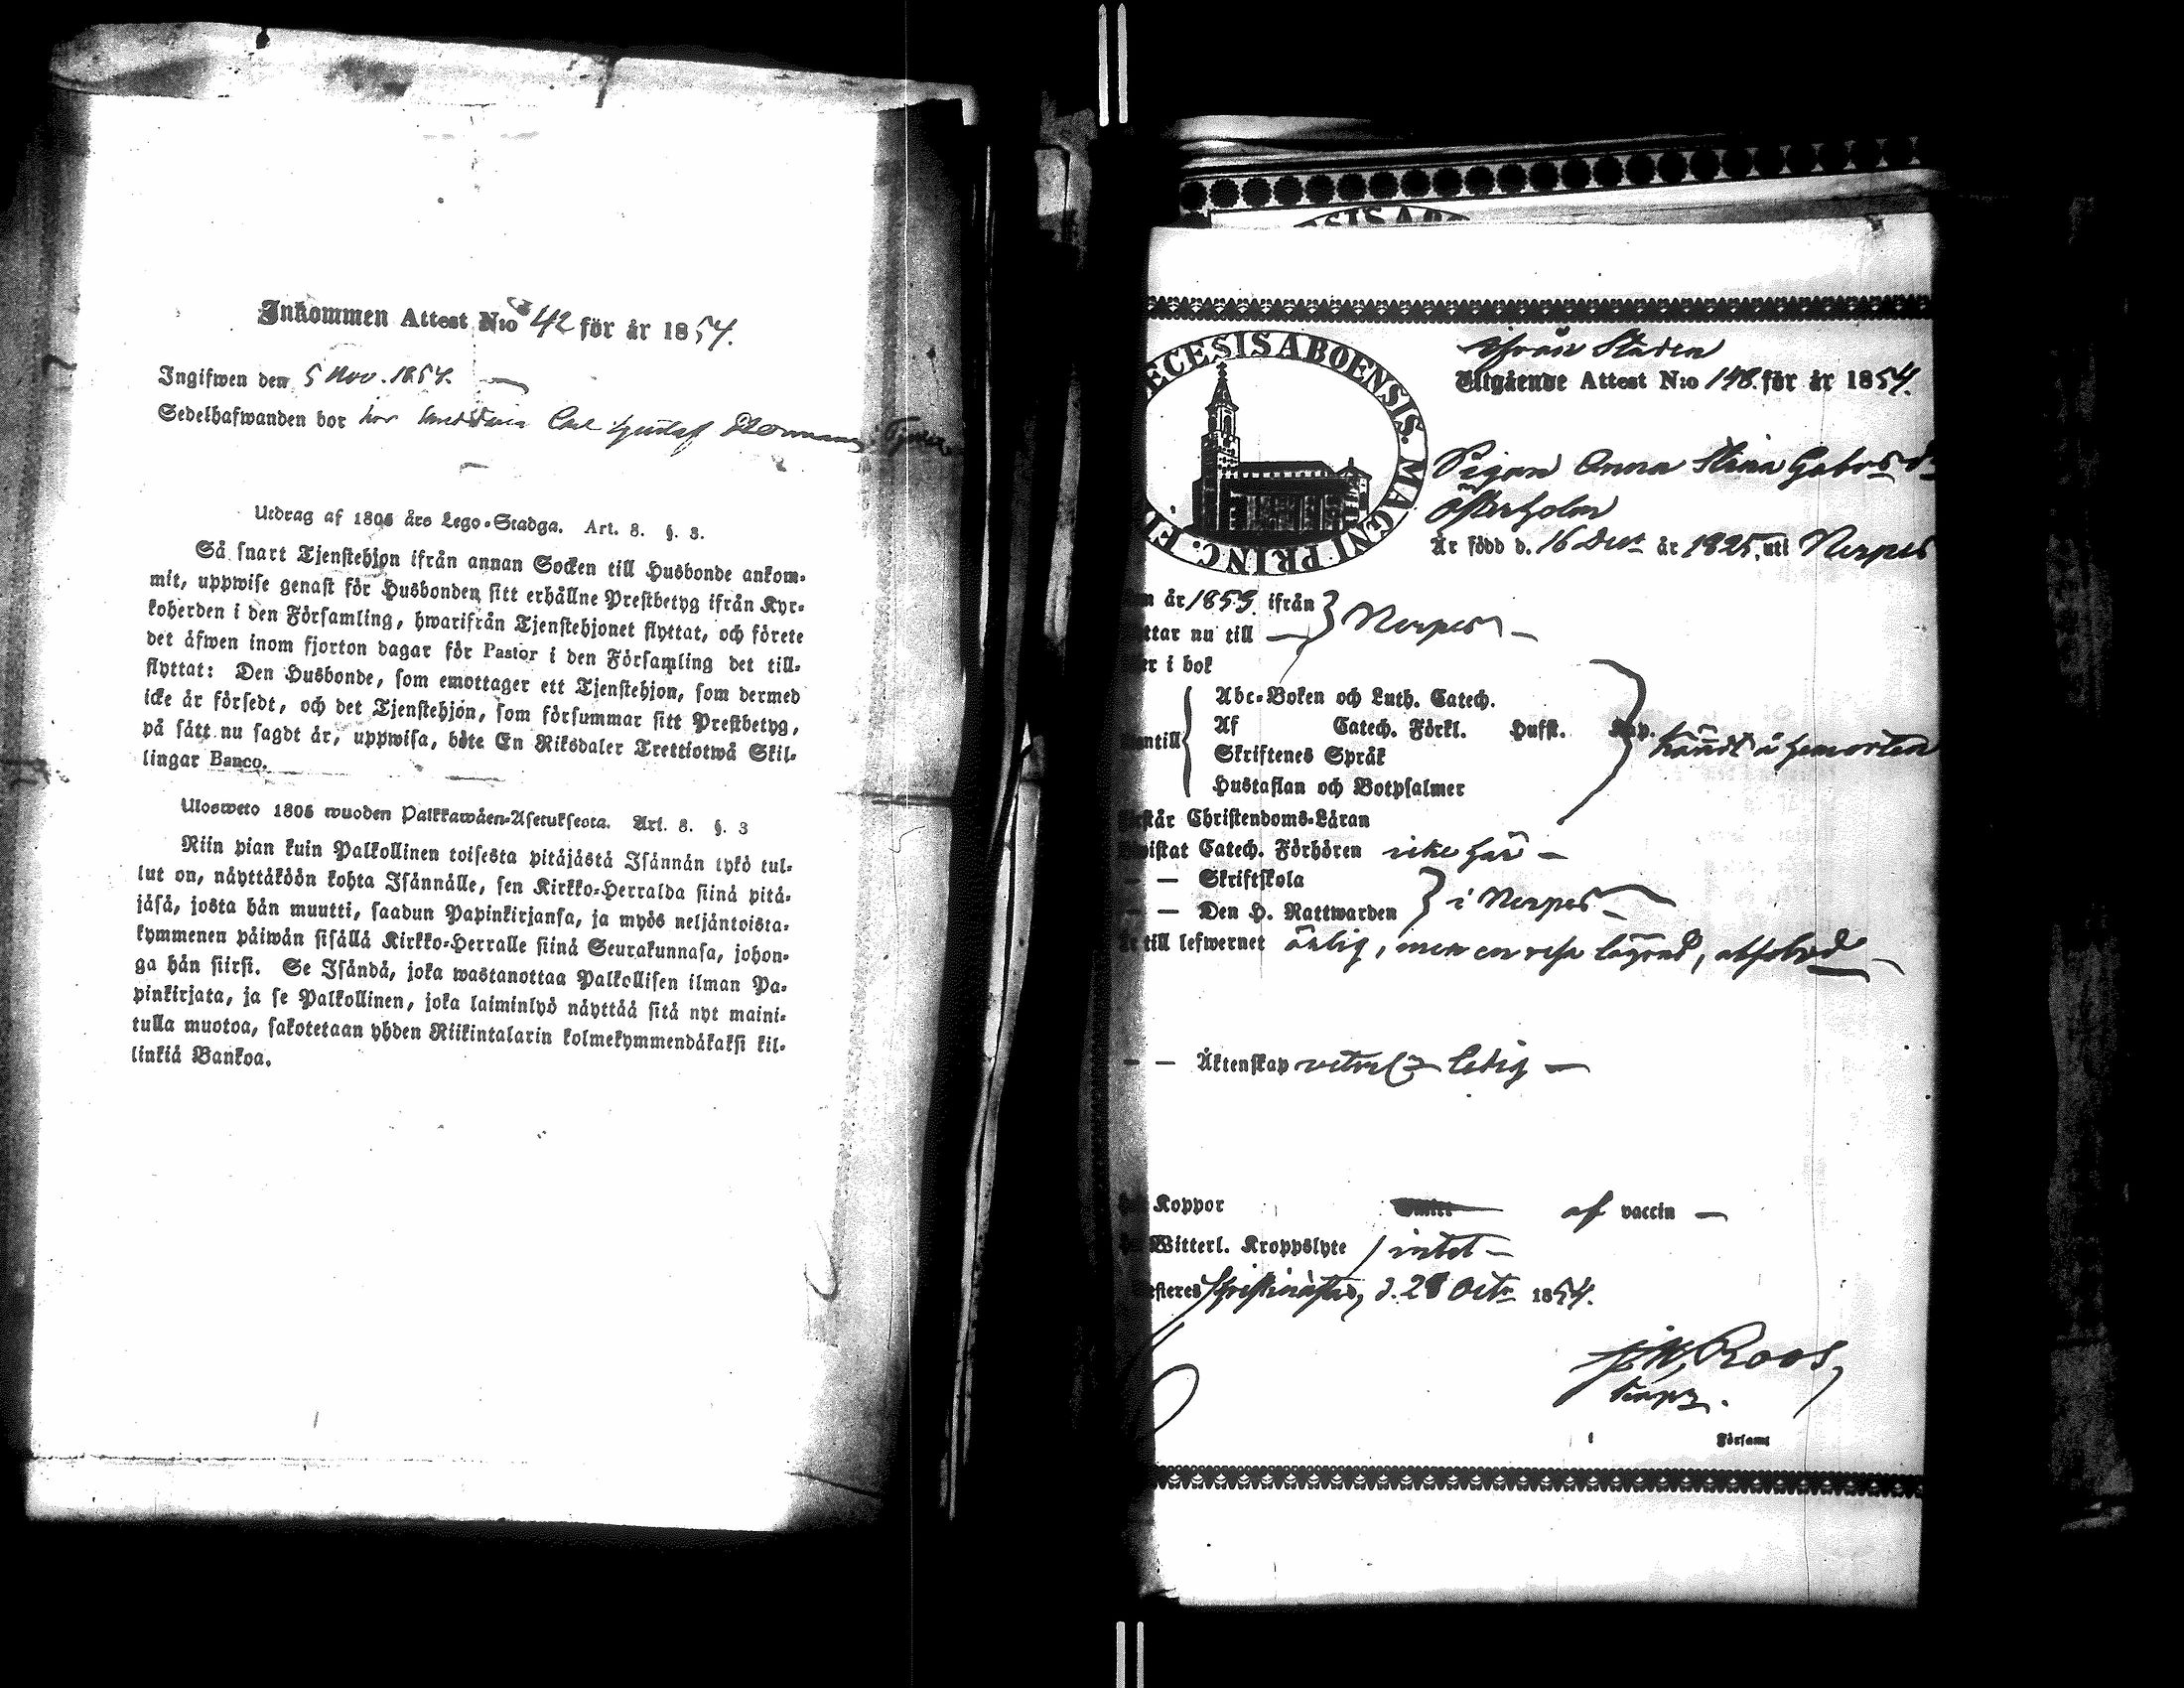 Inkommen Attest N:o 42 för år 1854.
Ingifwen den 5 Nov. 1854.
Sedelhafwanden bor hos Carl Gustaf
Utdrag af 1805 års Lego-Stadga. Art. 8. §. 3.
Så snart Tjenstehjon ifrån annan Socken till Husbonde ankom-
mit, uppwise genast för Husbonden sitt erhållne Prestbetyg ifrån Kyr-
koherden i den Församling, hwarifrån Tjenstehjonet flyttat, och förete
det äfwen inom fjorton dagar för Pastor i den Församling det till-
flyttat: Den Husbonde, som emottager ett Tjenstehjon, som dermed
icke är försedt, och det Tjenstehjon, som försummar sitt Prestbetyg,
på sätt nu sagdt är, uppwisa, böte En Riksdaler Trettiotwå Skil-
lingar Banco.
Ulosweto 1805 wuoden Palkkawäen-Asetuksesta. Art. 8. §. 3
Niin pian kuin Palkollinen toisesta pitäjästä Isännän tykö tul-
lut on, näyttäköön kohta Isännälle, sen Kirkko-Herralda siinä pitä-
jäsä, josta hän muutti, saadun Papinkirjansa, ja myös neljäntoista-
kymmenen päiwän sisällä Kirkko-Herralle siinä Seurakunnasa, johon-
ga hän siirsi. Se Isändä, joka wastanottaa Palkollisen ilman Pa-
pinkirjata, ja se Palkollinen, joka laiminlyö näyttää sitä nyt maini-
tulla muotoa, sakotetaan yhden Riikintalarin kolmekymmendäkaksi kil-
linkiä Bankoa.
ECESIS ABOENSIS. MAGNI PRINC. FI
ifrån Staden
Utgående Attest N:o 148. för år 1854.
Pigan Anna Stina Gabrsdr
Österholm
Är född d. 16 Decr år 1825, uti Nerpes
år 1853 ifrån
ttar nu till — Nerpes —
er i bok
Abc-Boken och Luth. Catech.
Af Catech. Förkl. Hufst. Kap.
Skriftenes Språk
antill
Hustaflan och Botpsalmer
står Christendoms-Läran
wistat Catech. Förhören icke här —
— — Skriftskola
— — Den H. Nattwarden i Nerpes —
till lefwernet ärlig, men en resa lägrad, absolverad
— — Äktenskap ledig —
Koppor af vaccin —
Witterl. Kroppslyte intet —
steres Christinestad, d. 28 Octr 1854.
Roos,
i Församl